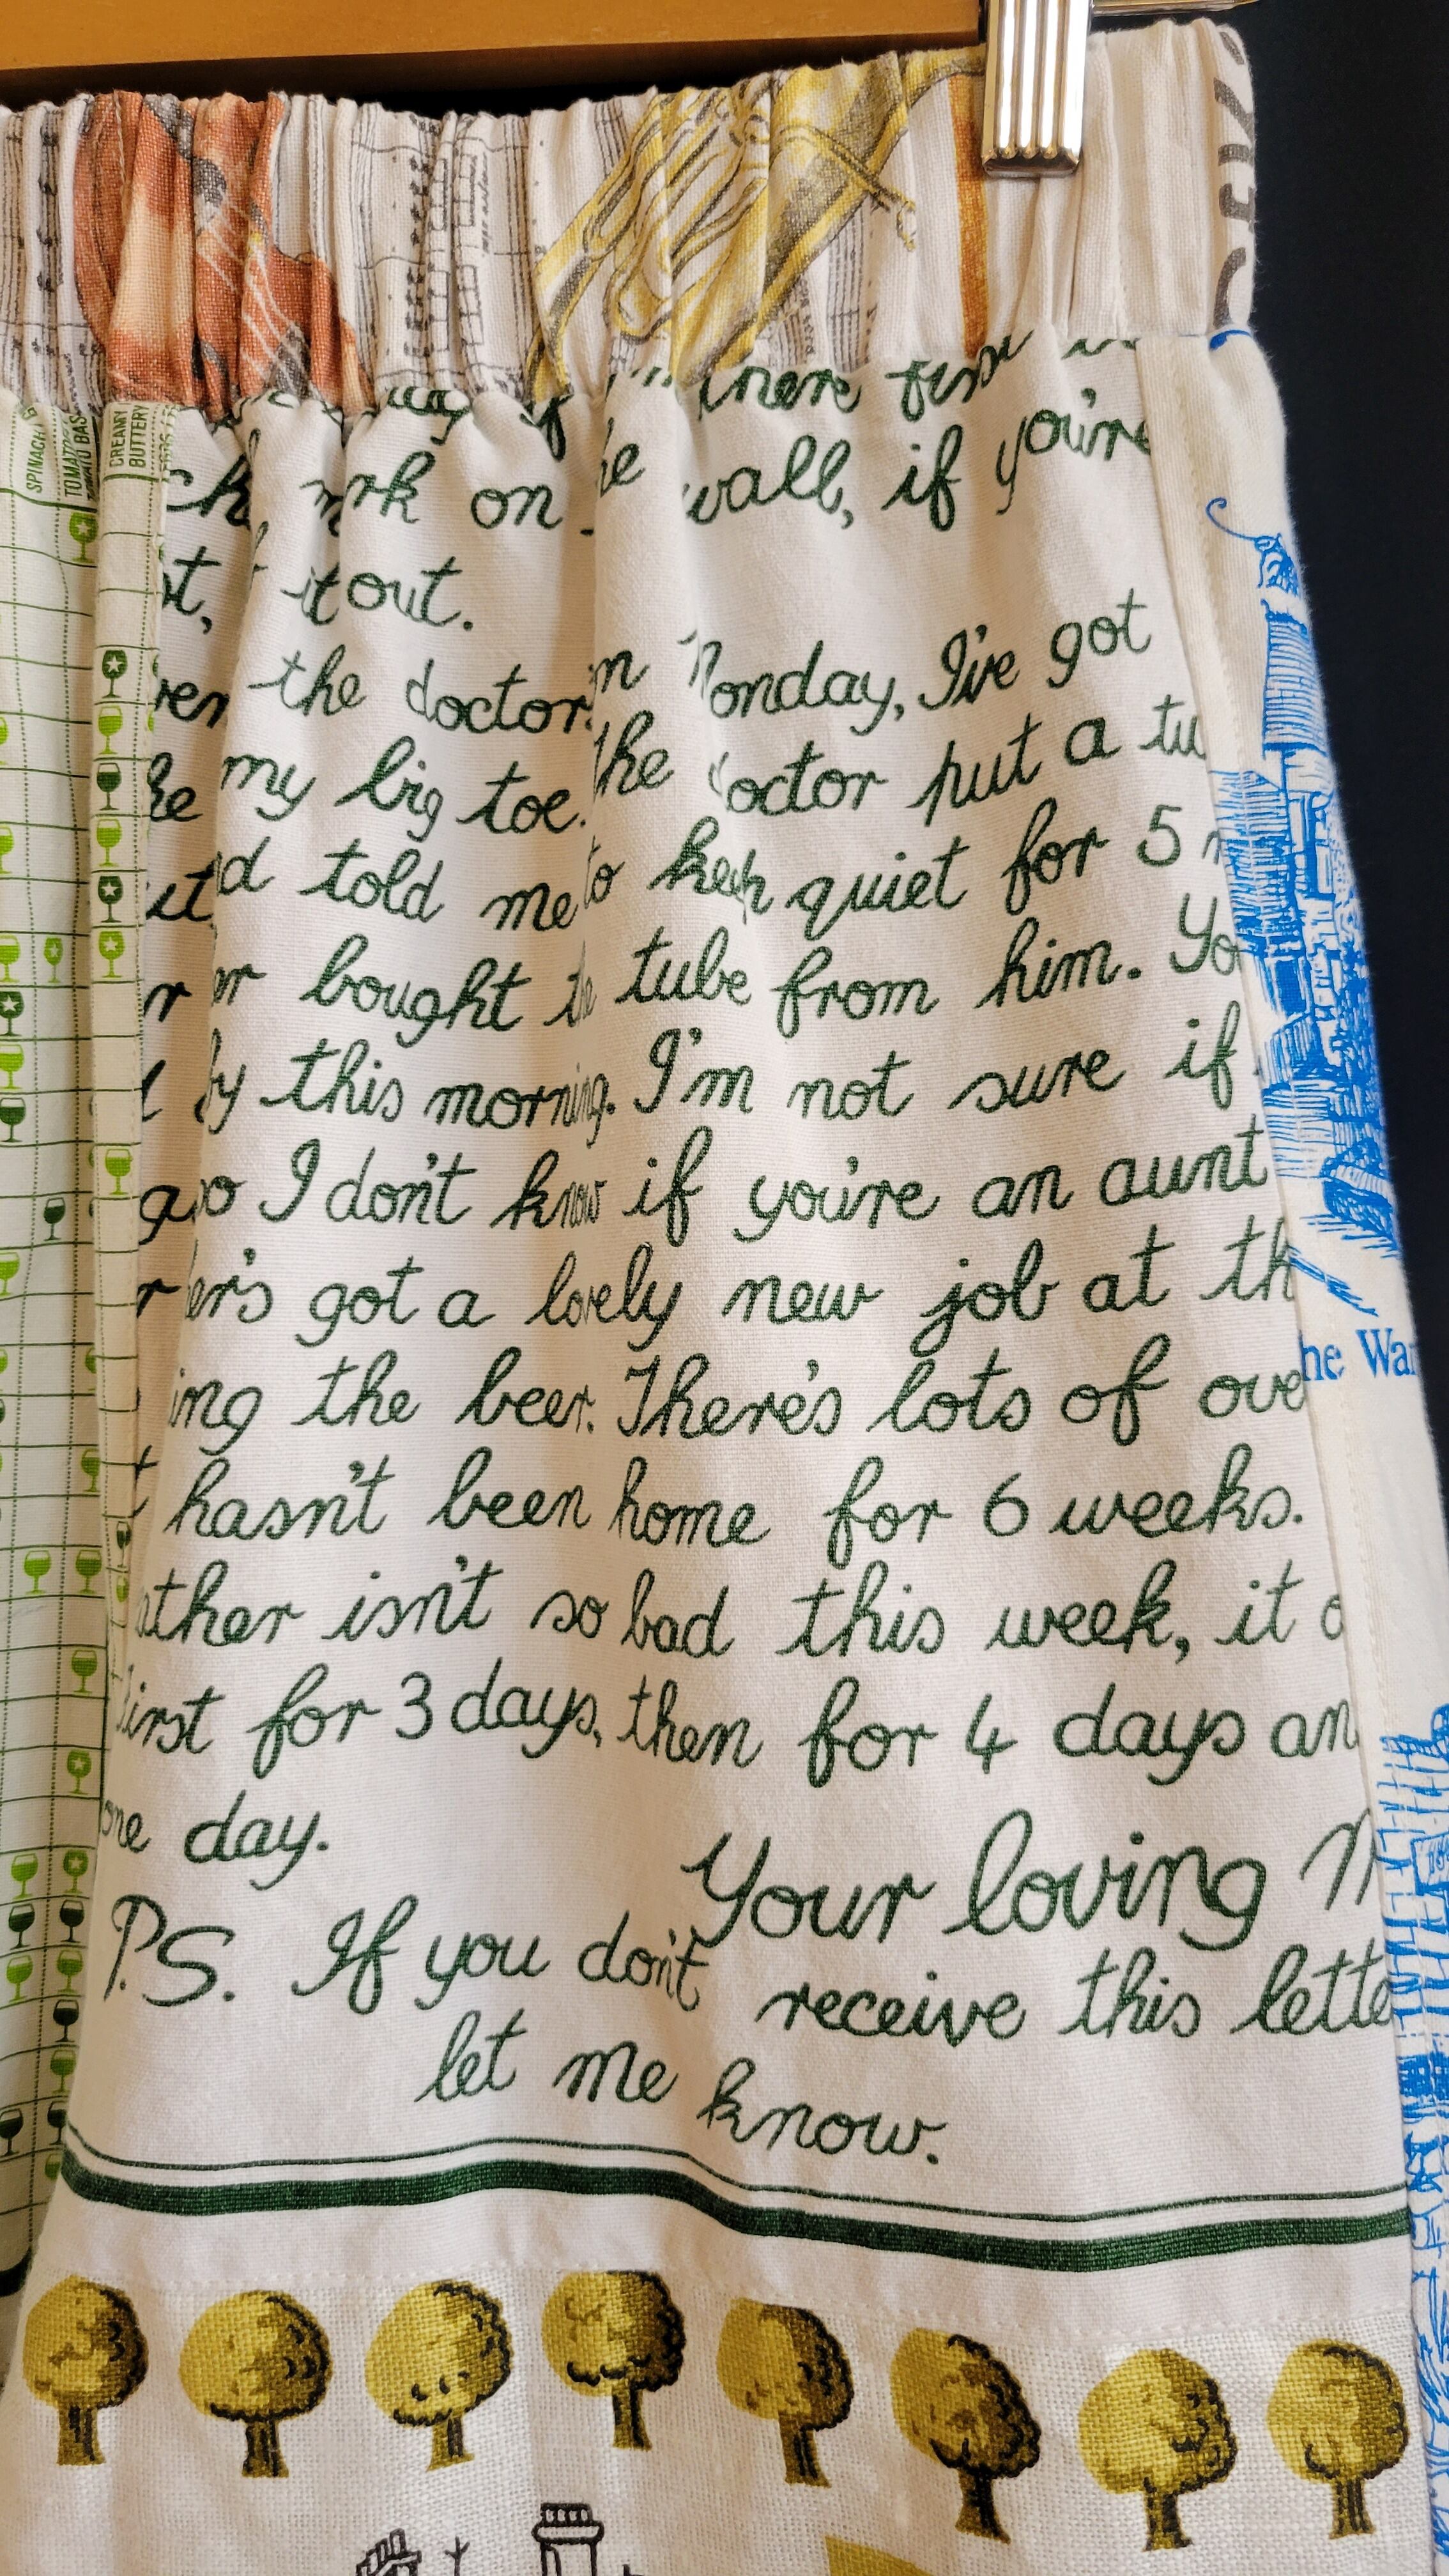 SPINACH
TOMATO BAS
CREAMY
BUTTERY
on wall, if you're
it out.
the doctor Monday, I've got
my big toe. The doctor put a tu
told me to keep quiet for 5
bought tube from him. Yo
by this morning. I'm not sure if
so I don't know if you're an aunt
er's got a lovely new job at th
ing the beer. There's lots of ove
hasn't been home for 6 weeks.
ather isn't so bad this week, it
first for 3 days, then for 4 days an
one day.
Your loving
P.S. If you don't receive this lette
let me know.
he Wa